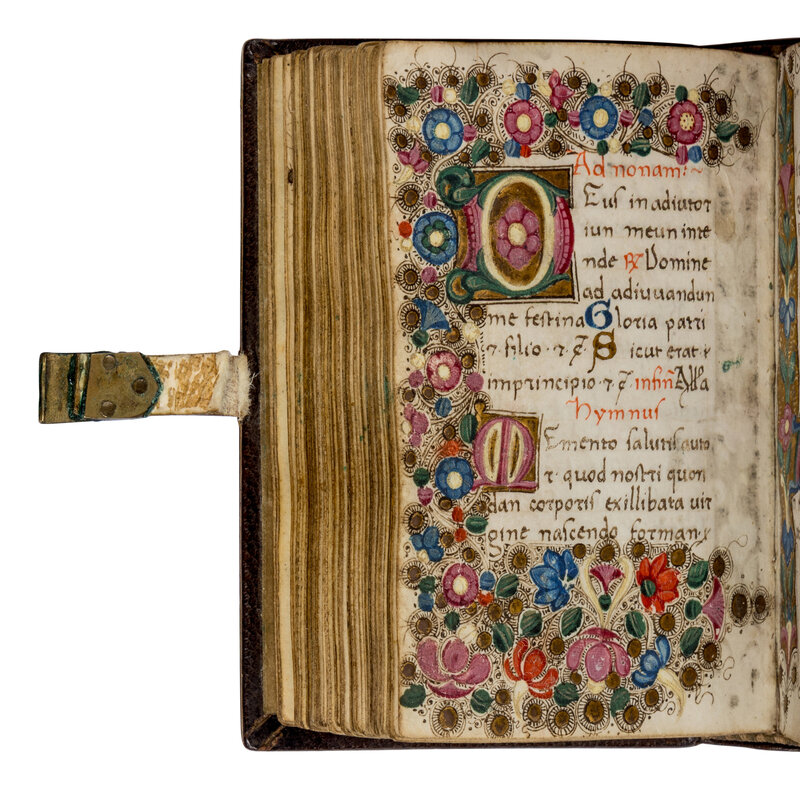 Ad nonam:~
Deus in adiutor
iun meun inte
nde ℟ Domine
ad adiuuandun
me festina Gloria patri
⁊ filio · ⁊ ȼ S icut erat ⁊
imprincipio · ⁊ ȼ infin̄ Alla
Hymnus
Memento salutis auto
r · quod nostri quon
dan corporis exillibata uir
gine nascendo forman⁊